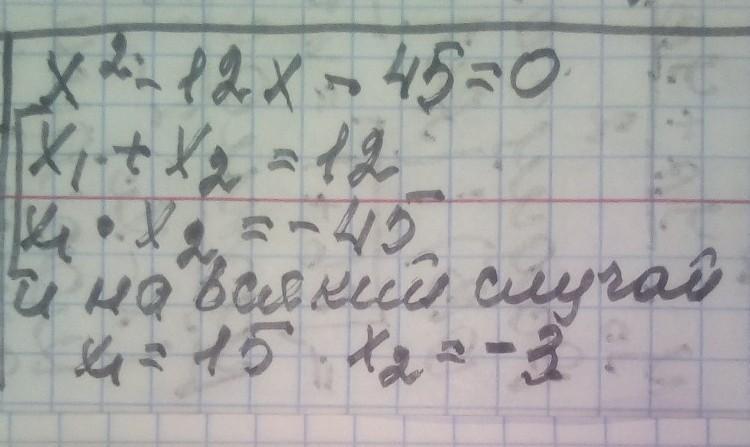 x² - 12x - 45 = 0
x₁ + x₂ = 12
x₁ · x₂ = -45
и на всякий случай
x₁ = 15 x₂ = -3